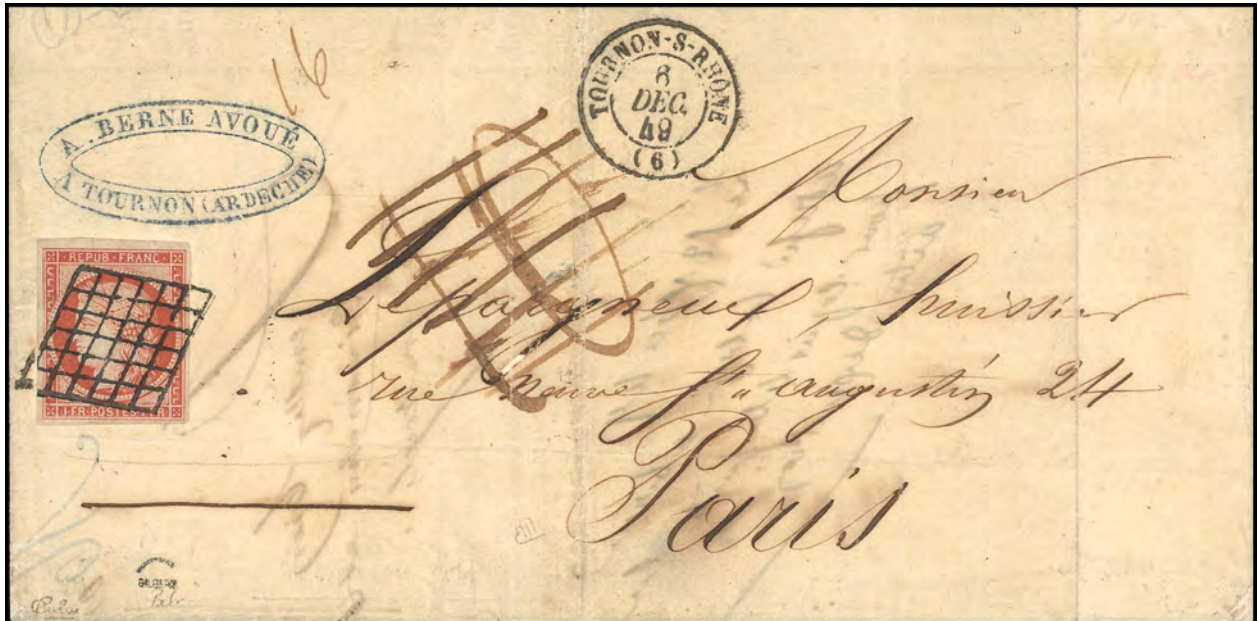 16
A. BERNE AVOUÉ
A TOURNON (ARDECHE)
TOURNON-S-RHÔNE
8
DEC.
49
(6)
REPUB·FRANC·
1·FR·POSTES·1·FR
Monsieur
Lepargneux, huissier
rue Neuve St augustin 24
Paris